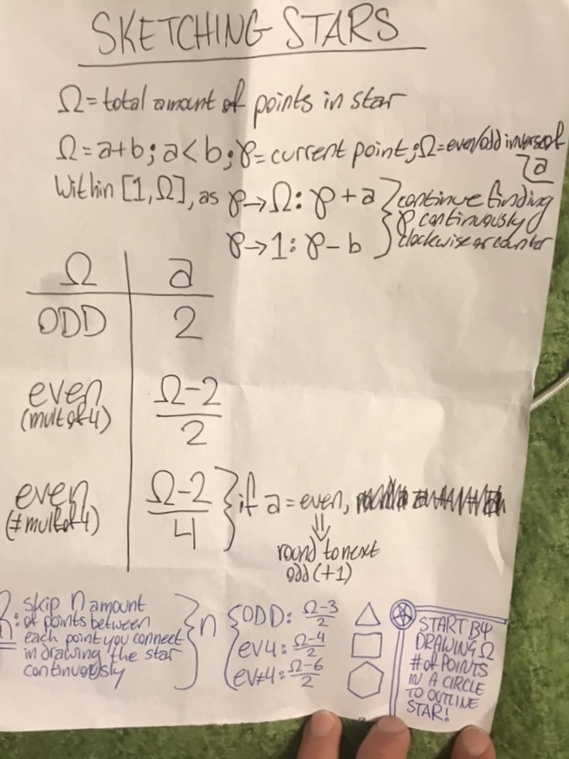 SKETCHING STARS
Ω = total amount of points in star
Ω = a+b; a<b; φ = current point; Ω = even/odd inverse of a
Within [1,Ω], as φ→Ω: φ+a } continue finding
φ→1: φ-b } φ continuously
clockwise or counter
Ω | a
ODD | 2
even (mult of 4) | Ω-2/2
even (≠mult of 4) | Ω-2/4 } if a = even,
⇓
round to next
odd (+1)
skip n amount
of points between
each point you connect
in drawing the star
continuously
} n { ODD: Ω-3/2
ev4: Ω-4/2
ev≠4: Ω-6/2
START BY
DRAWING Ω
# of POINTS
IN A CIRCLE
TO OUTLINE
STAR!